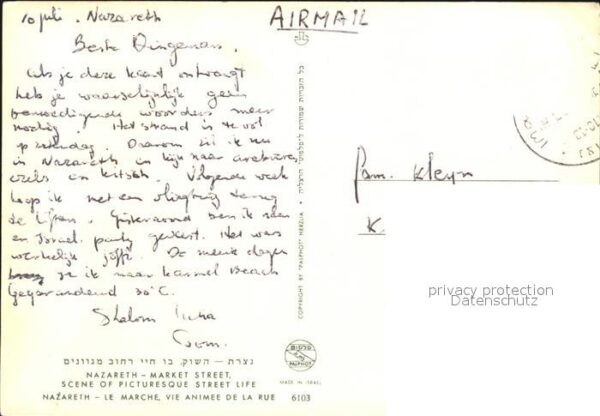 10 juli. Nazareth
Beste Dingeman.
Als je deze kaart ontvangt
heb je waarschijnlijk geen
bemoedigende woorden meer
nodig. Het strand is te vol
zaterdag. Daarom zit ik nu
in Nazareth en kijk naar arabieren,
ezels en kitsch. Volgende week
hoop ik met een vliegtuig terug
te
Gisteravond ben ik naar
een Israel. party geweest. Het was
werkelijk joffie. De meeste dagen
ga ik naar Karmel Beach
Gegarandeerd 30°C.
Shalom
AIRMAIL
Fam. Kleyn
K.
privacy protection
Datenschutz
כל הזכויות שמורות ל"פלפוט" הרצליה
COPYRIGHT BY "PALPHOT" HERZLIA
נצרת — השוק, בו חיי רחוב מגוונים
NAZARETH — MARKET STREET,
SCENE OF PICTURESQUE STREET LIFE
NAZARETH — LE MARCHE, VIE ANIMEE DE LA RUE
6103
PALPHOT
MADE IN ISRAEL